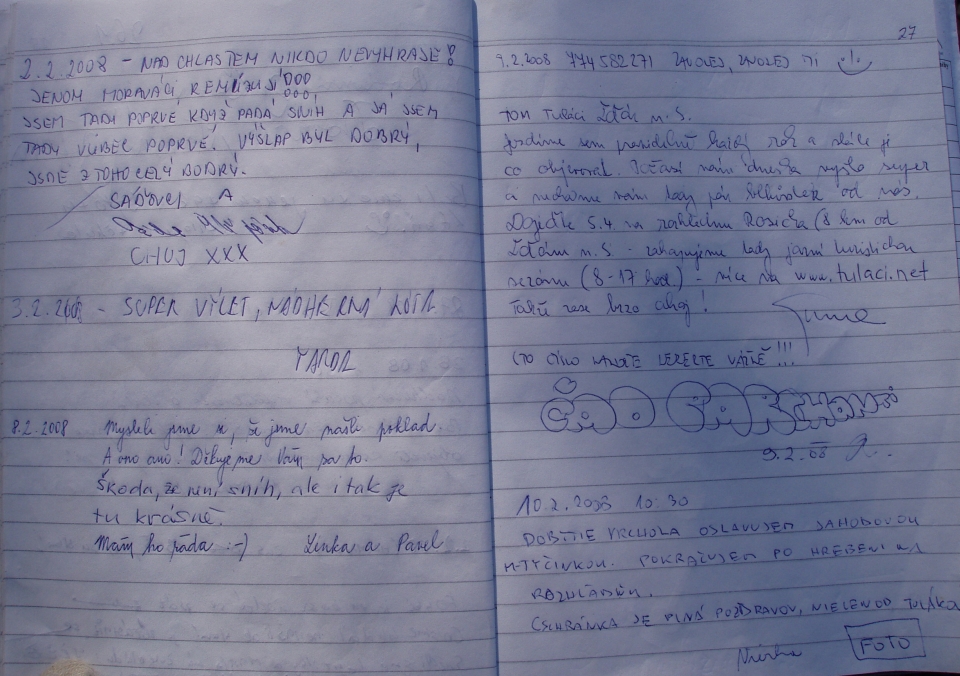 2.2.2008 - NAD CHLASTEM NIKDO NEVYHRAJE!
JENOM MORAVÁCI REMÍZUJÍ
JSEM TADY POPRVÉ KDYŽ PADÁ SNÍH A JÁ JSEM
TADY VŮBEC POPRVÉ. VÝŠLAP BYL DOBRÝ,
JSME Z TOHO CELÝ BODRÝ.
A
CHUJ XXX
3.2. - SUPER VÝLET, NÁDHERNÁ
8.2.2008 Mysleli jsme si, že jsme našli poklad.
A ono ano! Děkujeme Vám za to.
Škoda, že není sníh, ale i tak je
tu krásně.
Mám ho ráda :-) Lenka a Pavel
27
9.2.2008 774582271 ZAVOLEJ, ZAVOLEJ MI
TOM Tuláci Žďár n. S.
Jezdíme sem pravidelně každý rok a stále je
co objevovat. Počasí nám dneska vyšlo super
od nás.
5.4 na rozhlednu Rosička (8 km od
Žďáru n. S. - zahajujeme tady jarní turistickou
sezónu (8-17 hod) - více na www.tulaci.net
Takže zase brzo ahoj!
VÁŽNĚ!!!
9.2.08
10.2.2008 10:30
DOBYTIE VRCHOLA OSLAVUJEM JAHODOVOU
TYČINKOU. POKRAČUJEM PO HREBENI NA
CSCHRÁNKA JE PLNÁ POZDRAVOV, NIELEN OD TULÁKOV
FOTO